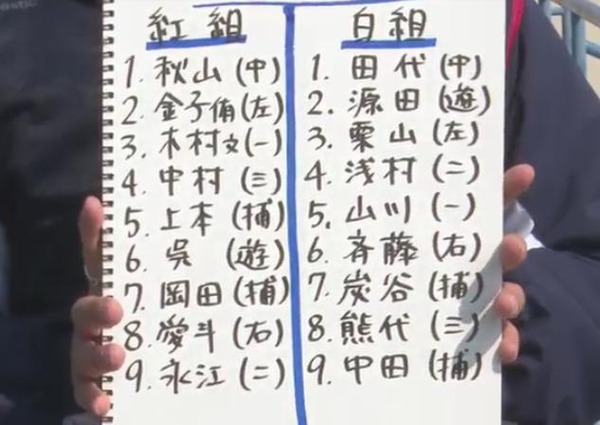 紅組
1. 秋山(中)
2. 金子侑(左)
3. 木村文(一)
4. 中村(三)
5. 上本(捕)
6. 呉(遊)
7. 岡田(捕)
8. 愛斗(右)
9. 永江(二)
白組
1. 田代(中)
2. 源田(遊)
3. 栗山(左)
4. 浅村(二)
5. 山川(一)
6. 斉藤(右)
7. 炭谷(捕)
8. 熊代(三)
9. 中田(捕)